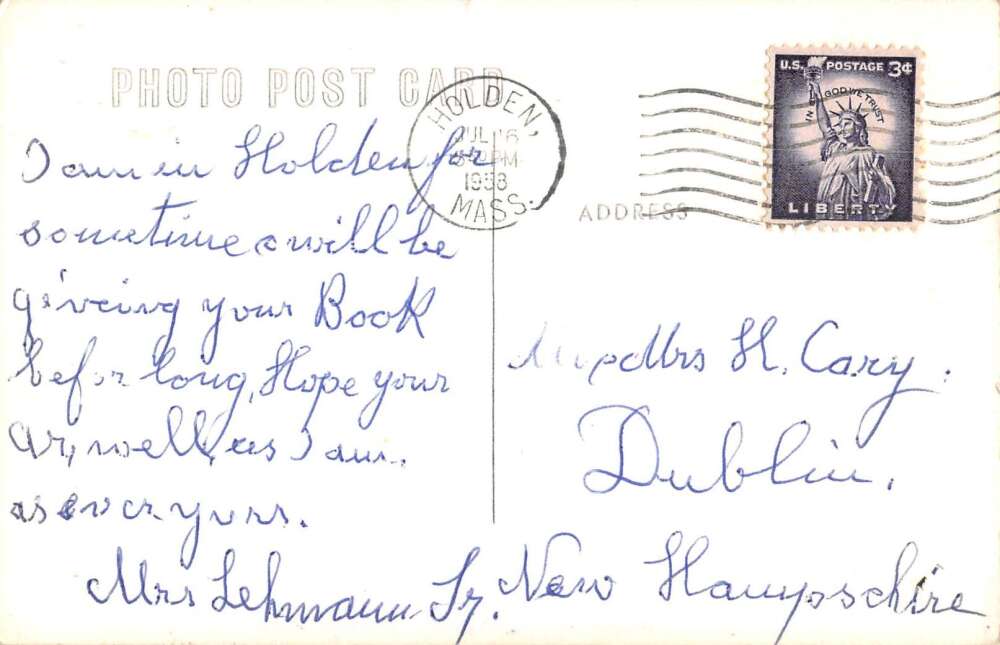 PHOTO POST CARD
HOLDEN,
JUL 16
PM
1958
MASS.
U.S. POSTAGE 3¢
IN GOD WE TRUST
LIBERTY
ADDRESS
I am in Holden for
sometime & will be
giveing your Book
befor long, Hope your
ar, well, as I am.
as ever yurs.
Mrs Lehmann Sr.
Mrs H. Cary.
Dublin.
New Hampschire